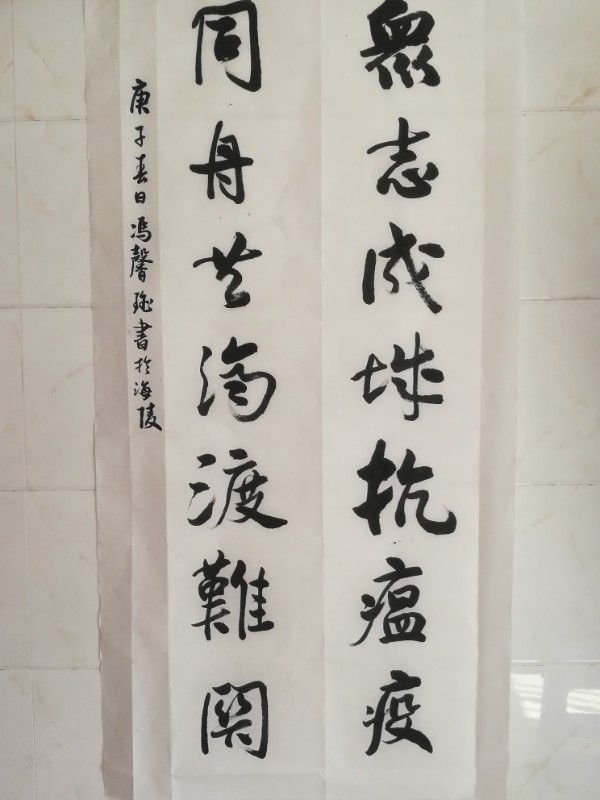 眾志成城抗瘟疫
同舟共濟渡難關
庚子春日馮馨瑶書於海陵